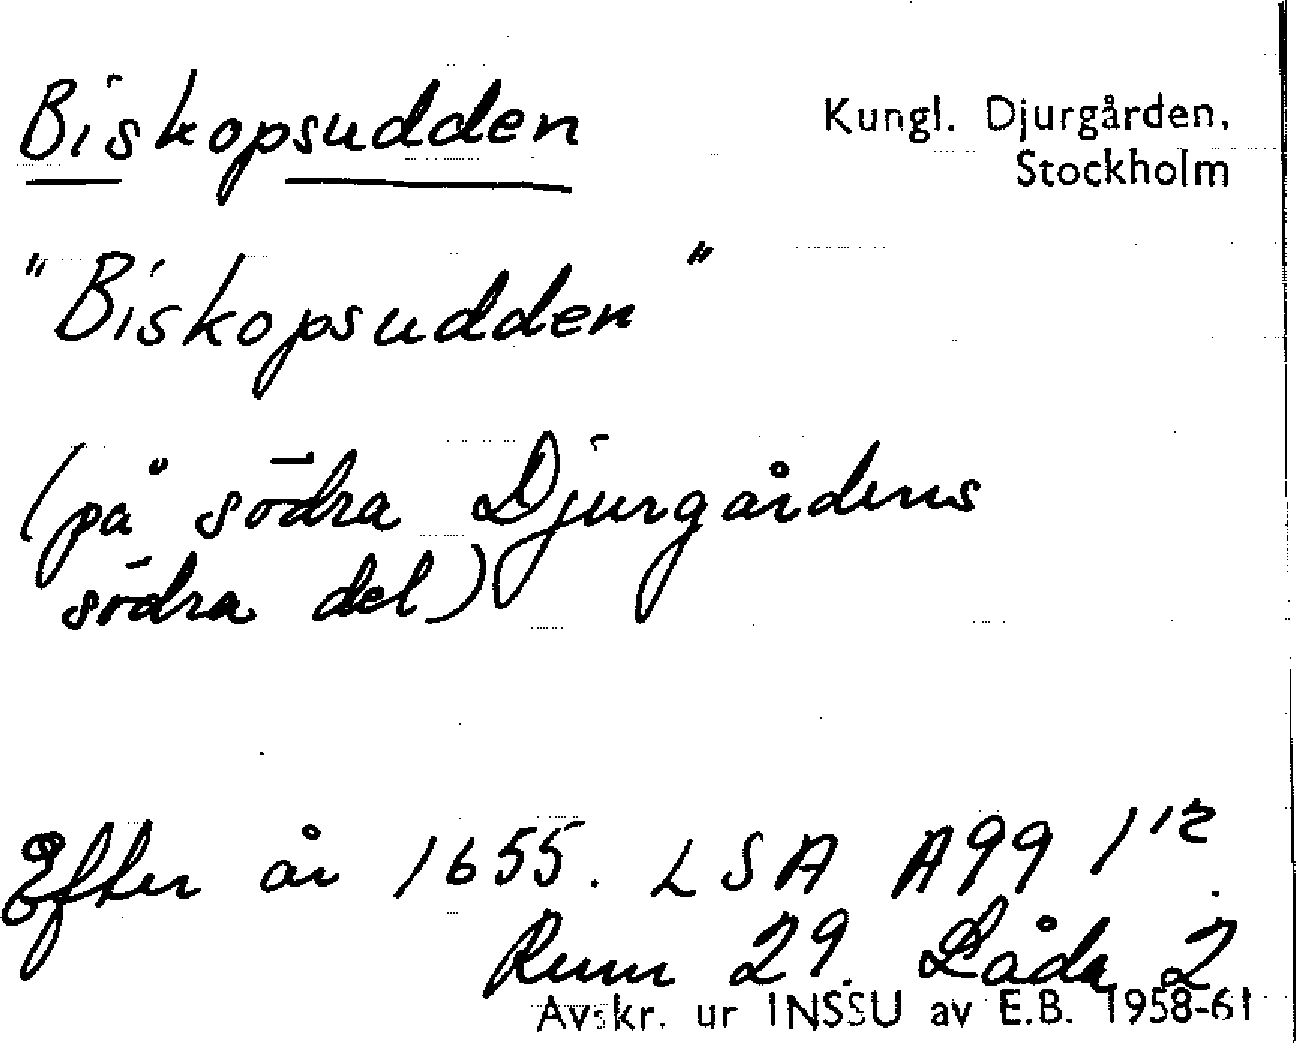 Biskopsudden Kungl. Djurgården,
Stockholm
"Biskopsudden"
(på södra Djurgårdens
södra del)
Efter år 1655. LSA A99 1¹².
Rum 29. Låda 2
Avskr. ur INSSU av E.B. 1958-61